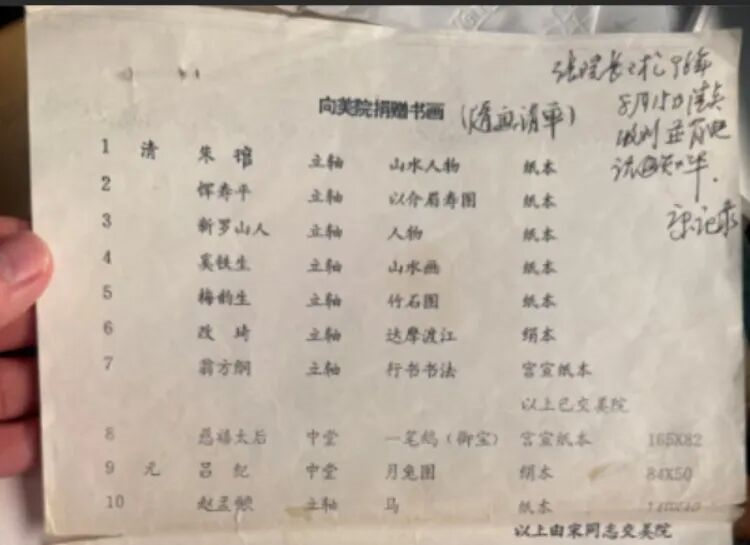 向美院捐赠书画 (清单)
1 清 朱 立轴 山水人物 纸本
2 恽寿平 立轴 以介眉寿图 纸本
3 新罗山人 立轴 人物 纸本
4 奚铁生 立轴 山水画 纸本
5 梅韵生 立轴 竹石图 纸本
6 改琦 立轴 达摩渡江 绢本
7 翁方纲 立轴 行书书法 宫宣纸本
以上已交美院
8 慈禧太后 中堂 一笔鹅(御宝) 宫宣纸本 165X82
9 元 吕纪 中堂 月兔图 绢本 84X50
10 赵孟頫 立轴 马 纸本
以上由宋同志交美院
张院长 96年
8月15日清点
收到并
记录